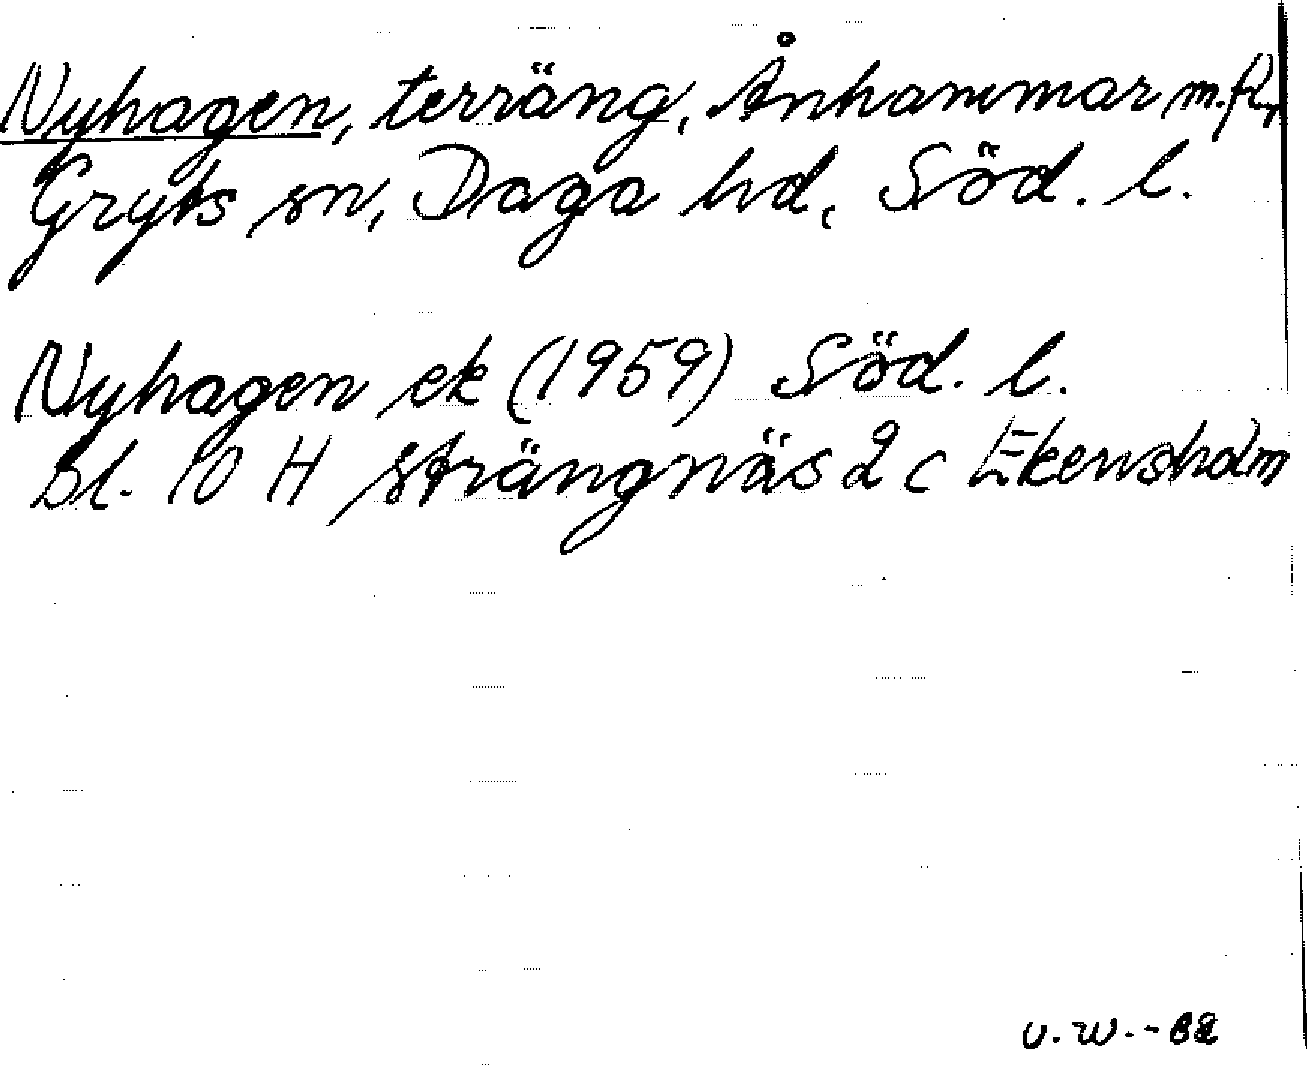 Nyhagen, terräng, Ånhammar m.fl.,
Gryts sn, Daga hd, Söd. l.
Nyhagen ek (1959) Söd. l.
Bl. 10 H Strängnäs 2 c Ekensholm
U.W.-62